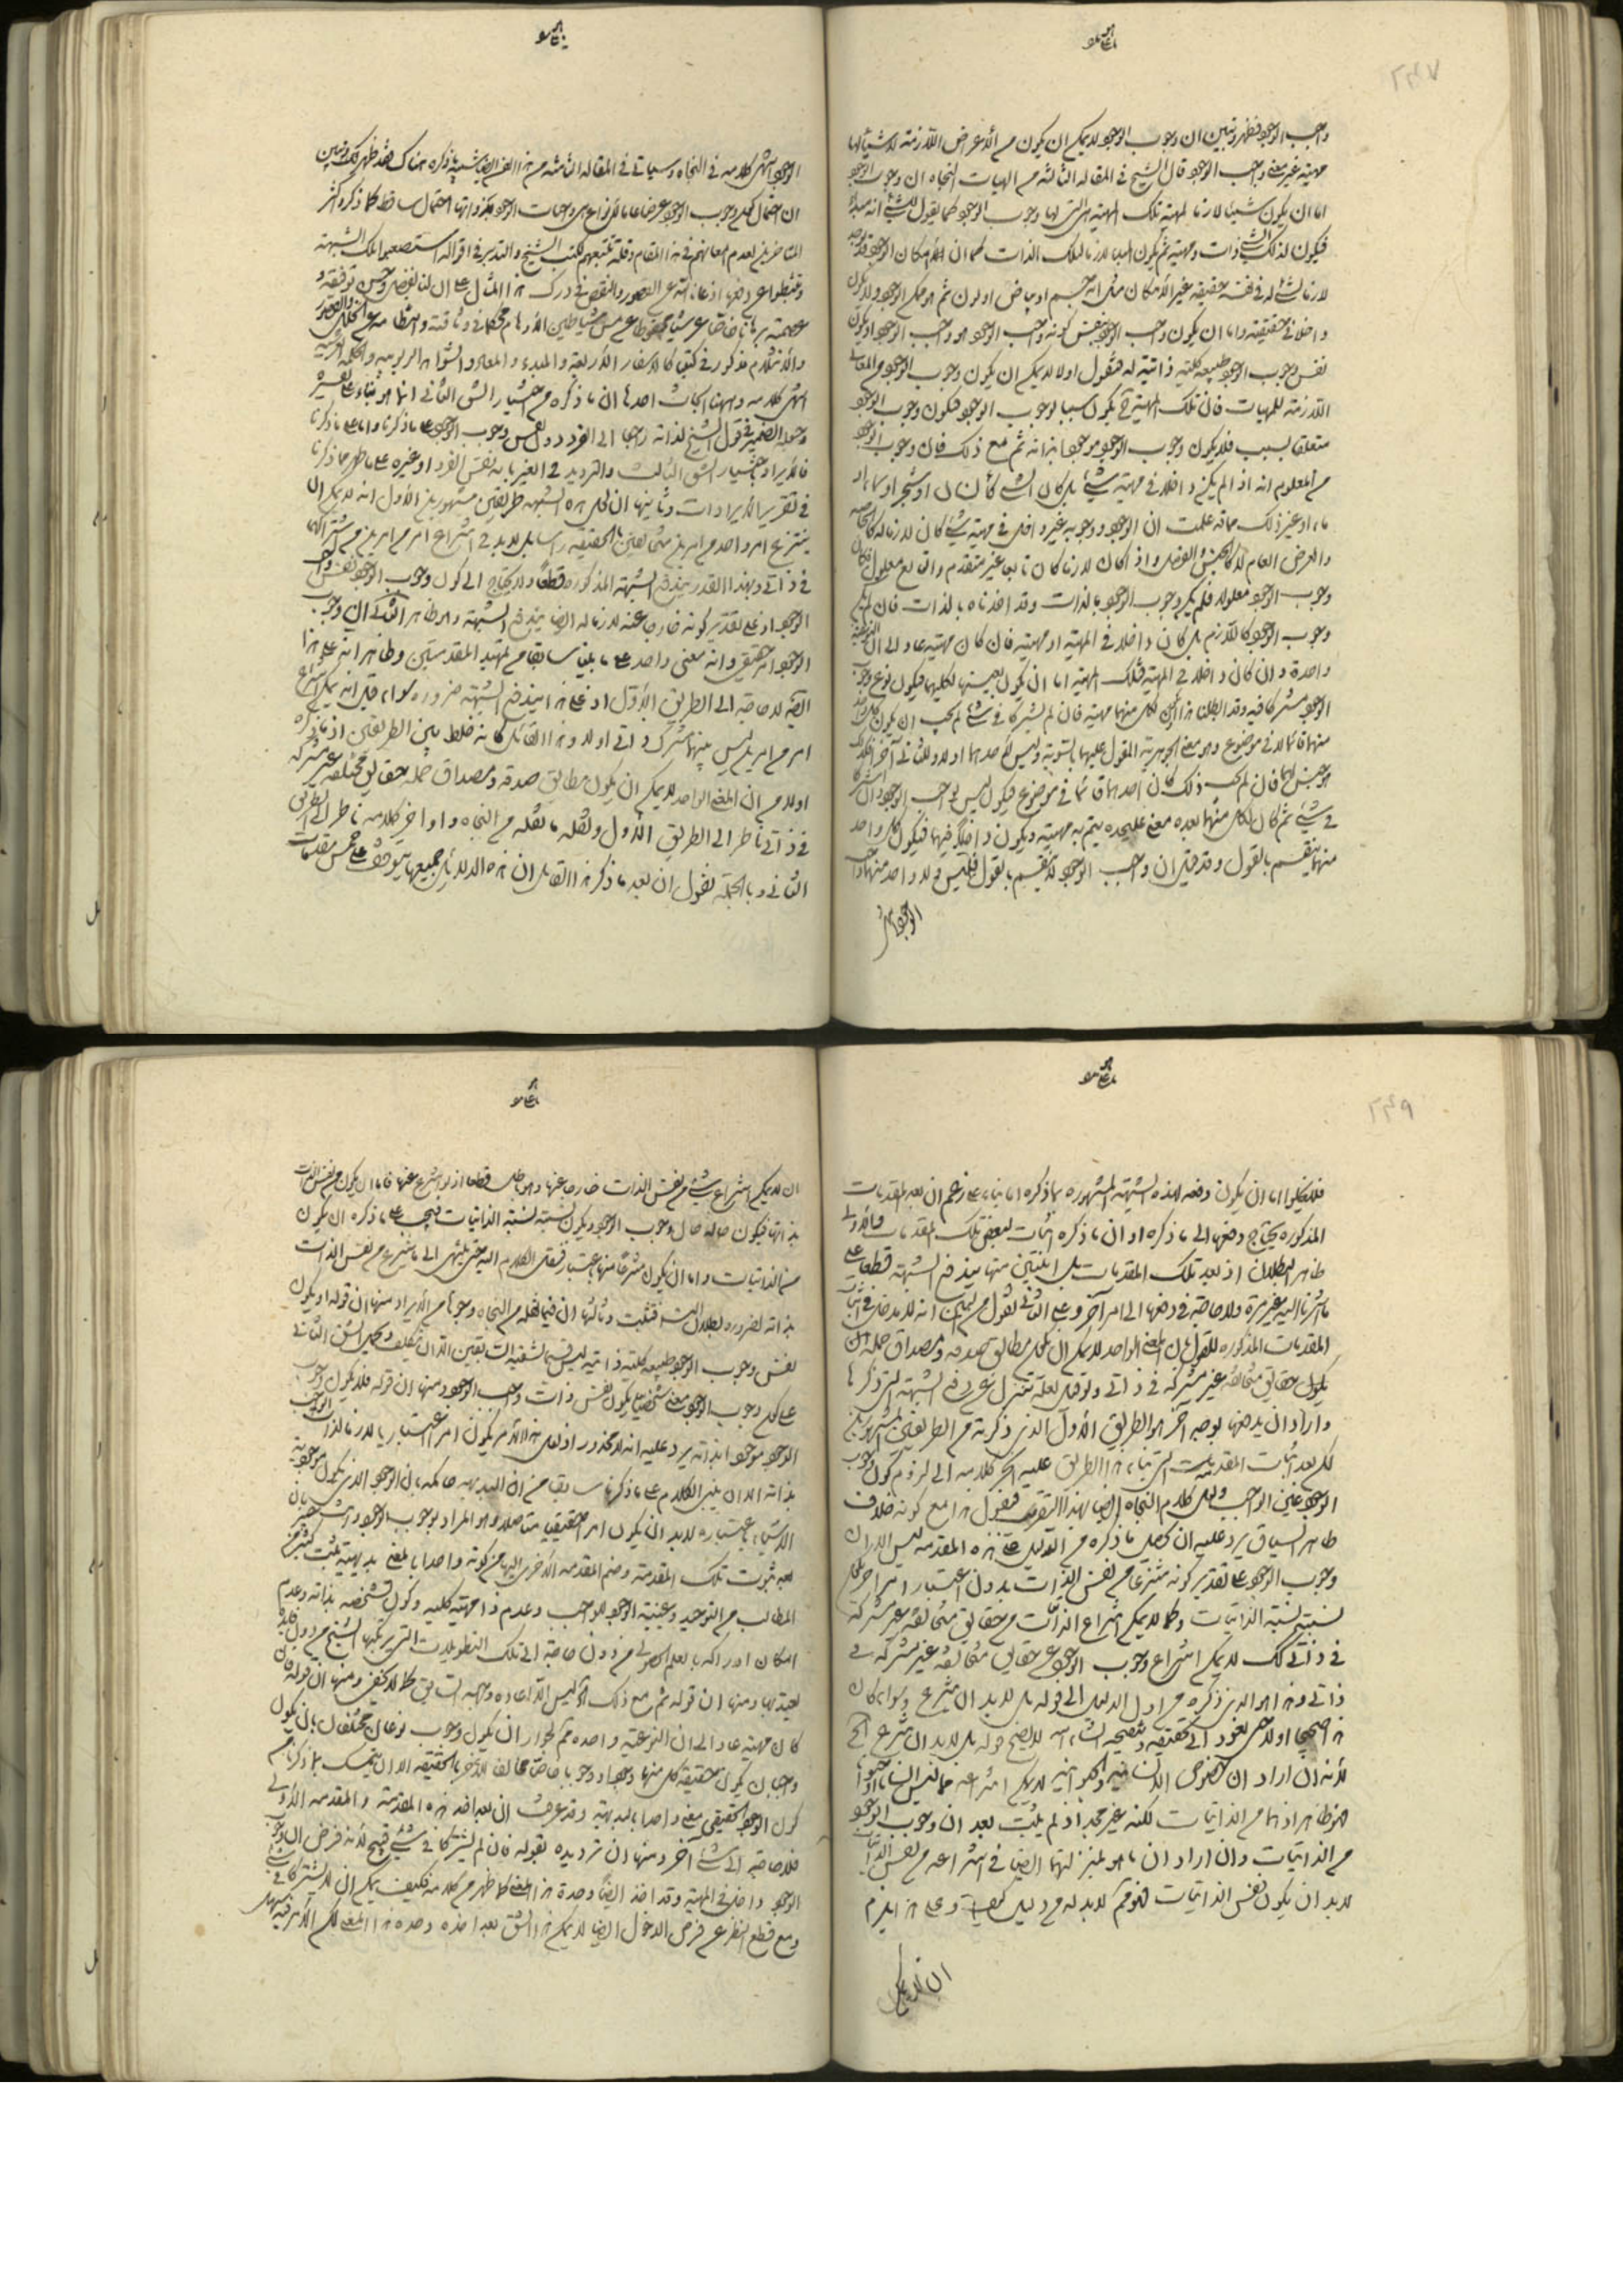 واجب الوجود فظهر وتبين ان وجوب الوجود لا يمكن ان يكون من الأعراض اللازمة لا شيئا لها
مهية غير معنى واجب الوجود قال الشيخ في المقالة الثالثة من الهيات النجاه ان وجوب الوجود
اما ان يكون شيئا لازما لمهية تلك المهية هى التى لها وجوب الوجود كما يقول للشئ انه مبدأ
فيكون لذلك الشئ ذات ومهية ثم يكون المبدأ لازما لتلك الذات كما ان امكان الوجود قد يوجد
لازما لشئ له في نفسه حقيقة غير الامكان مثل انه جسم او بياض او لون ثم هو ممكن الوجود ولا يكون
داخلا في حقيقته واما ان يكون واجب الوجود بنفس كونه واجب الوجود هو واجب الوجود ويكون
نفس وجوب الوجود طبيعة كلية ذاتية له فنقول اولا لا يمكن ان يكون وجوب الوجود من المعاني
اللازمة للمهيات فان تلك المهية ح يكون سببا لوجوب الوجود فيكون وجوب الوجود
متعلقا بسبب فلا يكون وجوب الوجود موجودا بذاته ثم مع ذلك فان وجوب الوجود
من المعلوم انه اذا لم يكن داخلا في مهية شئ بل كان الشئ كأنسان او شجر او سماء او
ماء او غير ذلك مما قد علمت ان الوجود ووجوبه غير داخل في مهية شئ كان لازما له كالخاصه
والعرض العام لا كالجنس والفصل واذا كان لازما كان تابعا غير متقدم والتابع معلول فكان
وجوب الوجود معلولا فلم يكن وجوب الوجود بالذات وقد اخذناه بالذات فان لم يكن
وجوب الوجود كاللازم بل كان داخلا في المهية او مهية فان كان مهية عاد الى ان النوعية
واحدة وان كان داخلا في المهية فتلك المهية اما ان يكون بعينها لكليهما فيكون نوع وجوب
الوجود مشتركا فيه وقد ابطلنا هذا او يكون لكل منهما مهية فان لم يشتركا في شئ لم يجب ان يكون كل واحد
منهما قائما لا في موضوع وهو معنى الجوهرية المقول عليهما بالسوية وليس لأحدهما اولا وللثاني آخرا فلذلك
هو جنس لهما فان لم يجب ذلك كان احدهما قائما في موضوع فيكون ليس بواجب الوجود وان اشتركا
في شئ ثم كان لكل منهما بعده معنى عليحده يتم به مهية ويكون داخلا فيهما فيكون كل واحد
منهما ينقسم بالقول وقد قيل ان واجب الوجود لا ينقسم بالقول فليس ولا واحد منهما واجب
الوجود انتهى
الوجود انتهى كلامه في النجاه وسياتى في المقالة الثامنة من هذا الفن ايضا شبيه ما ذكره هناك فقد ظهر لك وتبين
ان احتمال كون وجوب الوجود عرضا عاما لأنواع هى واجبات الوجود بذواتها احتمال ساقط كما ذكره اكثر
المتاخرين لعدم امعانهم في هذا المقام وقلة تتبعهم لكتب الشيخ والتدبر في اقواله استصعبوا تلك الشبهة
انتهى كلامه وههنا ابحاث احدها ان ما ذكره من اختيار الشق الثاني انما هو بناء على تفسيره
وجعله الضمير في قول الشيخ لذاته راجعا الى الفرد دون نفس وجوب الوجود على ما ذكرنا واما على ما ذكرنا
فالمراد اختيار الشق الثالث والترديد في الغير بانه نفس الفرد او غيره على ما ظهر مما ذكرنا
في تقرير الايرادات وثانيها ان لحل هذه الشبهة طريقين مشهورين الأول انه لا يمكن ان
ينتزع امر واحد من امرين متخالفين بالحقيقة راسا بل لا بد في انتزاع امر من امرين من اشتراكهما
في ذاتي وبهذا القدر يندفع الشبهة المذكورة قطعا ولا يحتاج الى كون وجوب الوجود نفس واجب
الوجود اذ على تقدير كونه خارجا عنه لازما له ايضا يندفع الشبهة والظاهر الثاني ان وجوب
الوجود امر حقيقي وانه معنى واحد على ما بينا سابقا من تمهيد المقدمتين وظاهر انه على هذا
ايضا لا حاجة الى الطريق الأول اذ على هذا يندفع الشبهة ضرورة سواء قيل انه يمكن انتزاع
امر من امرين ليس بينهما مشترك ذاتي اولا وهذا القائل كانه خلط بين الطريقين اذ ما ذكره
اولا من ان المعنى الواحد لا يمكن ان يكون مطابق صدقه ومصداق حمله حقايق مختلفه غير مشتركه
في ذاتي ناظر الى الطريق الأول ونقله ما نقله من النجاه واواخر كلامه ناظر الى الطريق
الثاني وبالجملة نقول ان بعد ما ذكر هذا القائل ان هذه الدلايل جميعها يتوقف على خمس مقدمات
فلا يخلوا اما ان يكون دفعه لهذه الشبهة المشهورة بما ذكره اما بناء على زعم ان بعد المقدمات
المذكورة يحتاج دفعها الى ما ذكره او ان ما ذكره اثبات لبعض تلك المقدمات والأول
ظاهر البطلان اذ بعد تلك المقدمات بل اثنتين منها يندفع الشبهة قطعا على
ما اشرنا اليه غير مرة ولا حاجة في دفعها الى امر آخر وعلى الثاني نقول من البين انه لا يدخل في اثبات
المقدمات المذكورة للقول بان المعنى الواحد لا يمكن ان يكون مطابق صدقه ومصداق حمله ان
يكون حقايق متخالفه غير مشتركه في ذاتي ولو قيل لعله تنزل عن دفع الشبهة التى ذكرها
واراد ان يدفعها بوجه آخر هو الطريق الأول الذى ذكرته من الطريقين المشهورين
لكن بعد اثبات المقدمات التى بناء هذا الطريق عليها انجر كلامه الى لزوم كون وجوب
الوجود عين الواجب ونقل كلام النجاه ايضا بهذا التقريب فنقول هذا مع كونه خلاف
ظاهر السياق يرد عليه ان حاصل ما ذكره من الدليل على هذه المقدمة ليس الا ان
وجوب الوجود على تقدير كونه منتزعا من نفس الذات بدون اعتبار امر آخر يكون
نسبته نسبة الذاتيات وكما لا يمكن انتزاع الذاتيات من حقايق متخالفه غير مشتركة
في ذاتي كك لا يمكن انتزاع وجوب الوجود عن حقايق متخالفه غير مشتركه في
ذاتي وهذا هو الذى ذكره من اول الدليل الى قوله بل لا بد ان ينتزع وسواء كان
هذا صحيحا اولا حتى نعود الى تحقيقه وتصحيحه انشاء الله لا يصح قوله بل لا بد ان ينتزع الخ
لأنه ان اراد ان خصوص الانسانية والحيوانية لا يمكن انتزاعه مما ليس انسانا او حيوانا
فهو ظاهر اذ هما من الذاتيات لكنه غير مجد اذ لم يثبت بعد ان وجوب الوجود
من الذاتيات وان اراد ان ما هو بمنزلتهما ايضا في انتزاعه من نفس الذات
لا بد ان يكون نفس الذاتيات فهو مم لا بد له من دليل وعلى هذا يلزم
ان لا يمكن
ان لا يمكن انتزاع شئ من نفس الذات خارجا عنها وهو باطل قطعا اذ لو انتزع عنها فاما ان يكون من نفس الذات
بذاتها فيكون حاله حال وجوب الوجود ويكون نسبته نسبة الذاتيات فيجب على ما ذكره ان يكون
من الذاتيات واما ان يكون منتزعا منها باعتبار فننقل الكلام اليه حتى ينتهى الى ما ينتزع من نفس الذات
بذاته لضرورة بطلان التسلسل فتثبت وثالثها ان فيما نقله من النجاه وجوها من الايراد منها ان قوله او يكون
نفس وجوب الوجود طبيعة كلية ذاتيه ليس قسيما لشقيه السابقين الا ان يتكلف ويحمل الشق الثاني
على كون وجوب الوجود معنى شخصيا يكون نفس ذات واجب الوجود ومنها ان قوله فلا يكون وجوب
الوجود موجودا بذاته يرد عليه انه لا محذور اذ لعل هذا الأمر يكون امرا اعتباريا لازما لذات الواجب
بذاته الا ان يبنى الكلام على ما ذكرنا سابقا من ان البديهه حاكمه بان الوجود الذى يكون موجودية
الاشياء باعتباره لا بد ان يكون امرا حقيقيا متاصلا وهو المراد بوجوب الوجود وانت خبير بان
بعد ثبوت تلك المقدمة وضم المقدمه الاخرى اليها من كونه واحدا بالمعنى بديهية يثبت كثير من
المطالب من التوحيد وعينية الوجود للواجب وعدم كونه ذا مهية كلية وكون تشخصه بذاته وعدم
امكان ادراكه بالعلم الحصولى من دون حاجة الى تلك التطويلات التى يرتكبها الشيخ من دون فائدة
يعتد بها ومنها ان قوله ثم مع ذلك الخ ليس الا اعاده وجه السابق كما لا يخفى ومنها ان قوله فان
كان مهية عاد الى ان النوعية واحده مم لجواز ان يكون وجوب نوعان مختلفان بان يكون
واجبان يكون حقيقة كل منهما وجودا ووجوبا خاصا مخالفا للآخر بالحقيقة الا ان يتمسك بما ذكرنا من
كون الوجود الحقيقي معنى واحدا بالبديهة وقد عرفت ان بعد اخذ هذه المقدمة والمقدمه الأولى
فلا حاجة الى شئ آخر ومنها ان ترديده بقوله فان لم يشتركا في شئ قبيح لأنه فرض ان وجوب
الوجود داخل في المهية وقد اخذ ايضا وحدة هذا المعنى كما ظهر من كلامه فكيف يمكن ان لا يشتركا في شئ
ومع قطع النظر عن فرض الدخول ايضا لا يمكن هذا الشق بعد اخذه وحدة هذا المعنى لكن الأمر فيه سهل